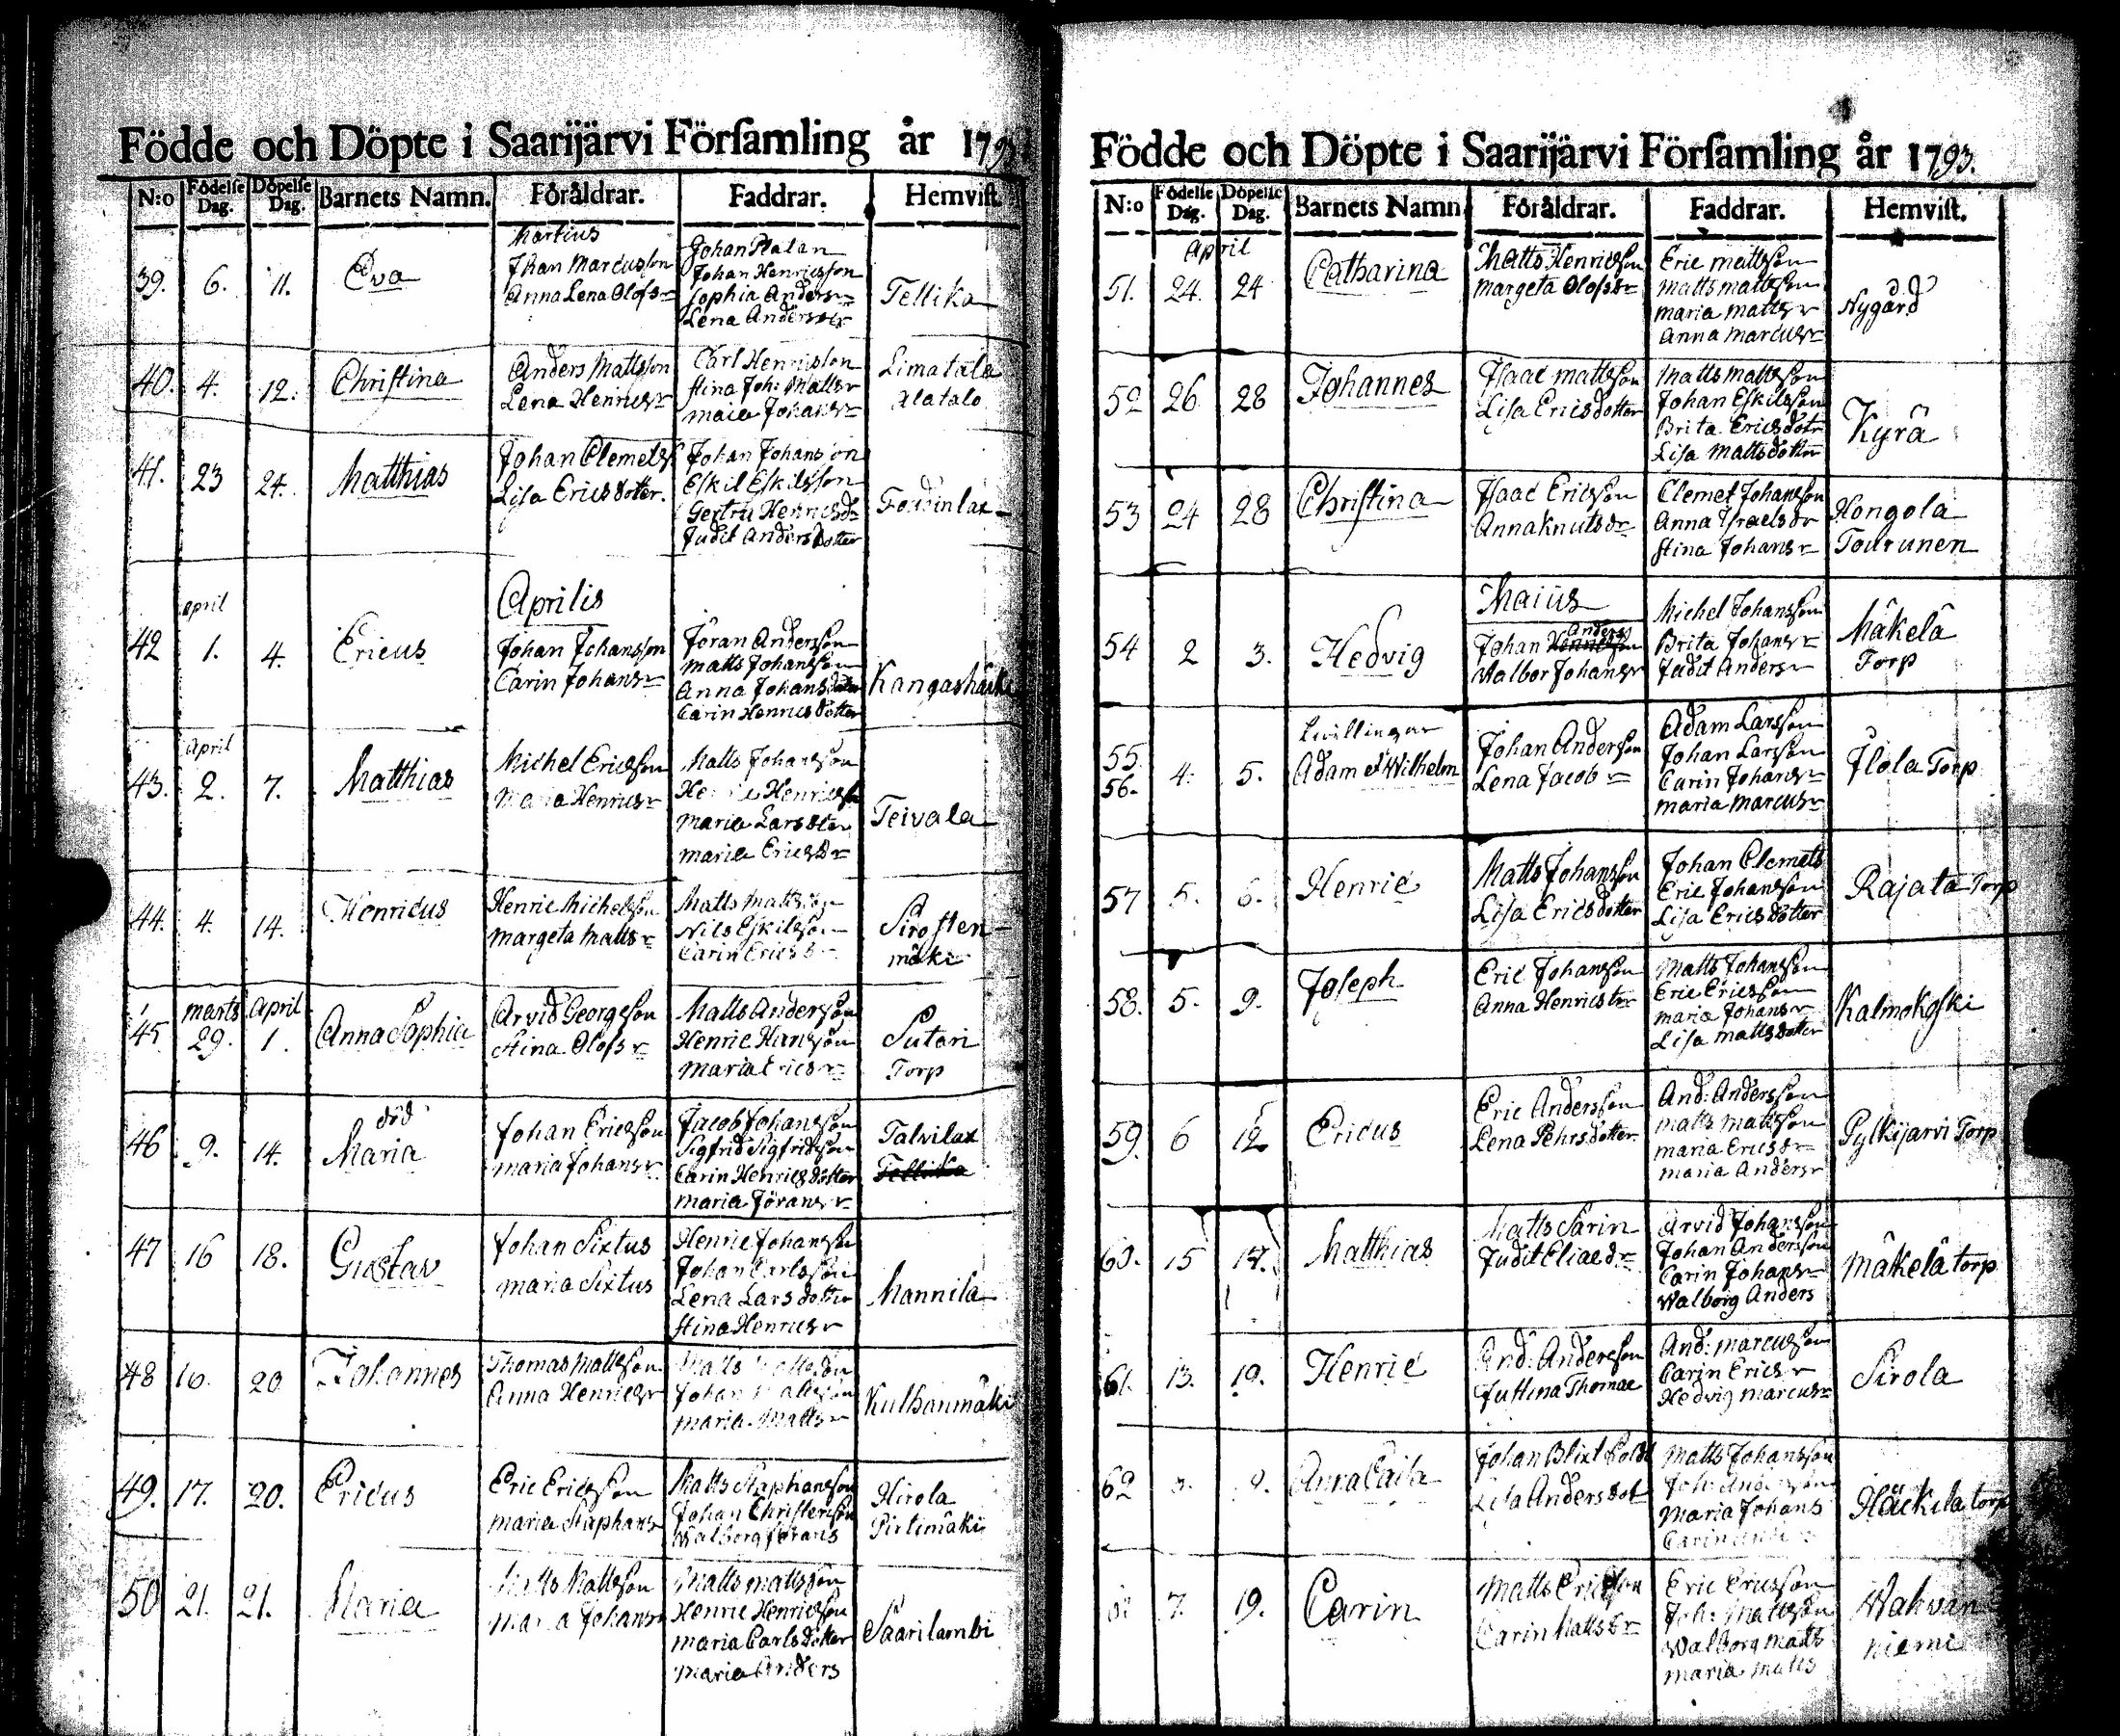 Födde och Döpte i Saarijärvi Församling år 1793
N:o Födelse Dag. Döpelse Dag. Barnets Namn. Föräldrar. Faddrar. Hemvist.
Martius
39. 6. 11. Eva
Johan Marcusson
Anna Lena Olofs
Johan
Johan Henricsson
Sophia Anders
Lena Anders
Tellika
40. 4. 12. Christina
Anders Mattsson
Lena Henrics
Carl Henricsson
Stina Joh: Matts
Maia Johans
Limatala
Alatalo
41. 23 24. Matthias
Johan Clemets
Lisa Ericsdotter.
Johan Johansson
Eskil Eskilsson
Gertru Henricsd
Judit Andersdotter
Aprilis
april
42 1. 4. Ericus
Johan Johansson
Carin Johans
Jöran Andersson
Matts Johansson
Anna Johansdotter
Carin Henricsdotter
april
43. 2. 7. Matthias
Michel Ericsson
Maria Henrics
Matts Johansson
Henric Henricsson
Maria Larsdoter
Maria Ericsd
Teivala
44. 4. 14. Henricus
Henric Michelsson
Margeta Matts
Matts Mattsson
Nils Eskilsson
Carin Ericsd
mäki
45 marts 29. april 1. Anna Sophia
Arvid Georgsson
Stina Olofs
Matts Andersson
Henric Hansson
Maria Erics
Sutari
Torp
död
46 9. 14. Maria
Johan Ericsson
Maria Johans
Jacob Johansson
Sigfrid Sigfridsson
Carin Henricsdotter
Maria Jörans
Talvilax
Tellika
47 16 18. Gustav
Johan Sixtus
Maria Sixtus
Henric Johansson
Johan Carlsson
Lena Larsdotter
Stina Henrics
Mannila
48 16. 20 Johannes
Thomas Mattsson
Anna Henrics
Matts Mattsson
Johan Mattsson
Maria Matts
Kulhanmäki
49. 17. 20. Ericus
Eric Ericsson
Maria Staphans
Matts Staphansson
Johan Christersson
Walborg Jörans
Hirola
Pirtimäki
50 21. 21. Maria
Matts Mattsson
Maria Johans
Matts Mattsson
Henric Henricsson
Maria Carlsdotter
Maria Anders
Saarilambi
Födde och Döpte i Saarijärvi Församling år 1793.
N:o Födelse Dag. Döpelse Dag. Barnets Namn Föräldrar. Faddrar. Hemvist.
April
51. 24. 24 Catharina
Matts Henricsson
Margeta Olofsdr
Eric Mattsson
Matts Mattsson
Maria Matts
Anna Marcus
Nygård
52 26 28 Johannes
Isaac Mattsson
Lisa Ericsdotter
Matts Mattsson
Johan Eskilsson
Brita Ericsdotr
Lisa Mattsdotter
Kyrä
53 24 28 Christina
Isaac Ericsson
Anna Knutsdr
Clemet Johansson
Anna Israelsdr
Stina Johans
Hongola
Tourunen
Maius
54 2 3. Hedvig
Anderss
Johan Henricsson
Walbor Johans
Michel Johansson
Brita Johans
Judit Anders
Mäkelä
Torp
Tvillingar
55. 56. 4. 5. Adam et Wilhelm
Johan Andersson
Lena Jacob
Adam Larsson
Johan Larsson
Carin Johans
Maria Marcus
Ilola Torp
57 5. 6. Henric
Matts Johansson
Lisa Ericsdotter
Johan Clemets
Eric Johansson
Lisa Ericsdotter
Rajata Torp
58. 5. 9. Joseph
Eric Johansson
Anna Henrics
Matts Johansson
Eric Ericsson
Maria Johans
Lisa Mattsdotter
Kalmokoski
59. 6 12 Ericus
Eric Andersson
Lena Pehrsdotter
And: Andersson
Matts Mattsson
Maria Ericsdr
Maria Anders
Pylkijärvi Torp
60. 15 17. Matthias
Matts Sarin
Judit Eliaed
Arvid Johansson
Johan Andersson
Carin Johans
Walborg Anders
Mäkelä torp
61. 13. 19. Henric
And: Andersson
Justina Thomae
And: Marcusson
Carin Erics
Hedvig Marcus
Sirola
62 Anna Caisa
Johan Blixt Sold
Lisa Andersdot
Matts Johansson
Joh: Andersson
Maria Johans
Carin
Häckila torp
7. 19. Carin
Matts Ericsson
Carin Mattsdr
Eric Ericsson
Joh: Mattsson
Walborg Matts
Maria Matts
Wahvan
niemi